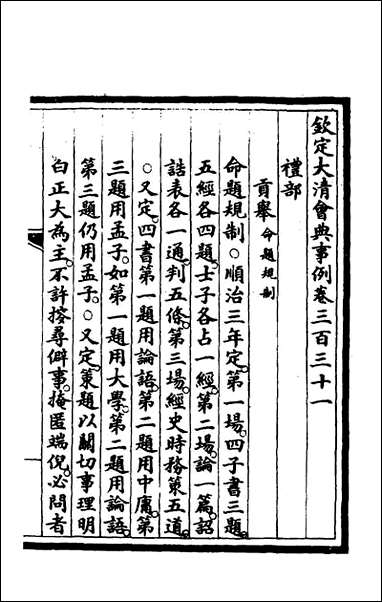 欽定大清會典事例卷三百三十一
禮部
貢舉命題規制
命題規制○順治三年定。第一場。四子書三題。
五經各四題。士子各占一經。第二場。論一篇。詔
誥表各一通。判五條。第三場。經史時務策五道。
○又定。四書第一題用論語。第二題用中庸。第
三題用孟子。如第一題用大學。第二題用論語。
第三題仍用孟子。○又定。策題以關切事理明
白正大為王。不許搜尋僻事。掩匿端倪。必問者